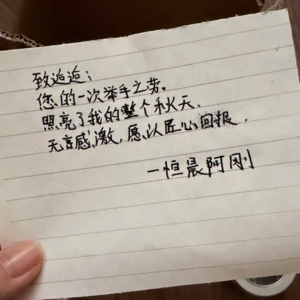 致逅逅：
您的一次举手之劳，
照亮了我的整个秋天，
无言感激，愿以匠心回报。
一恒晨阿刚